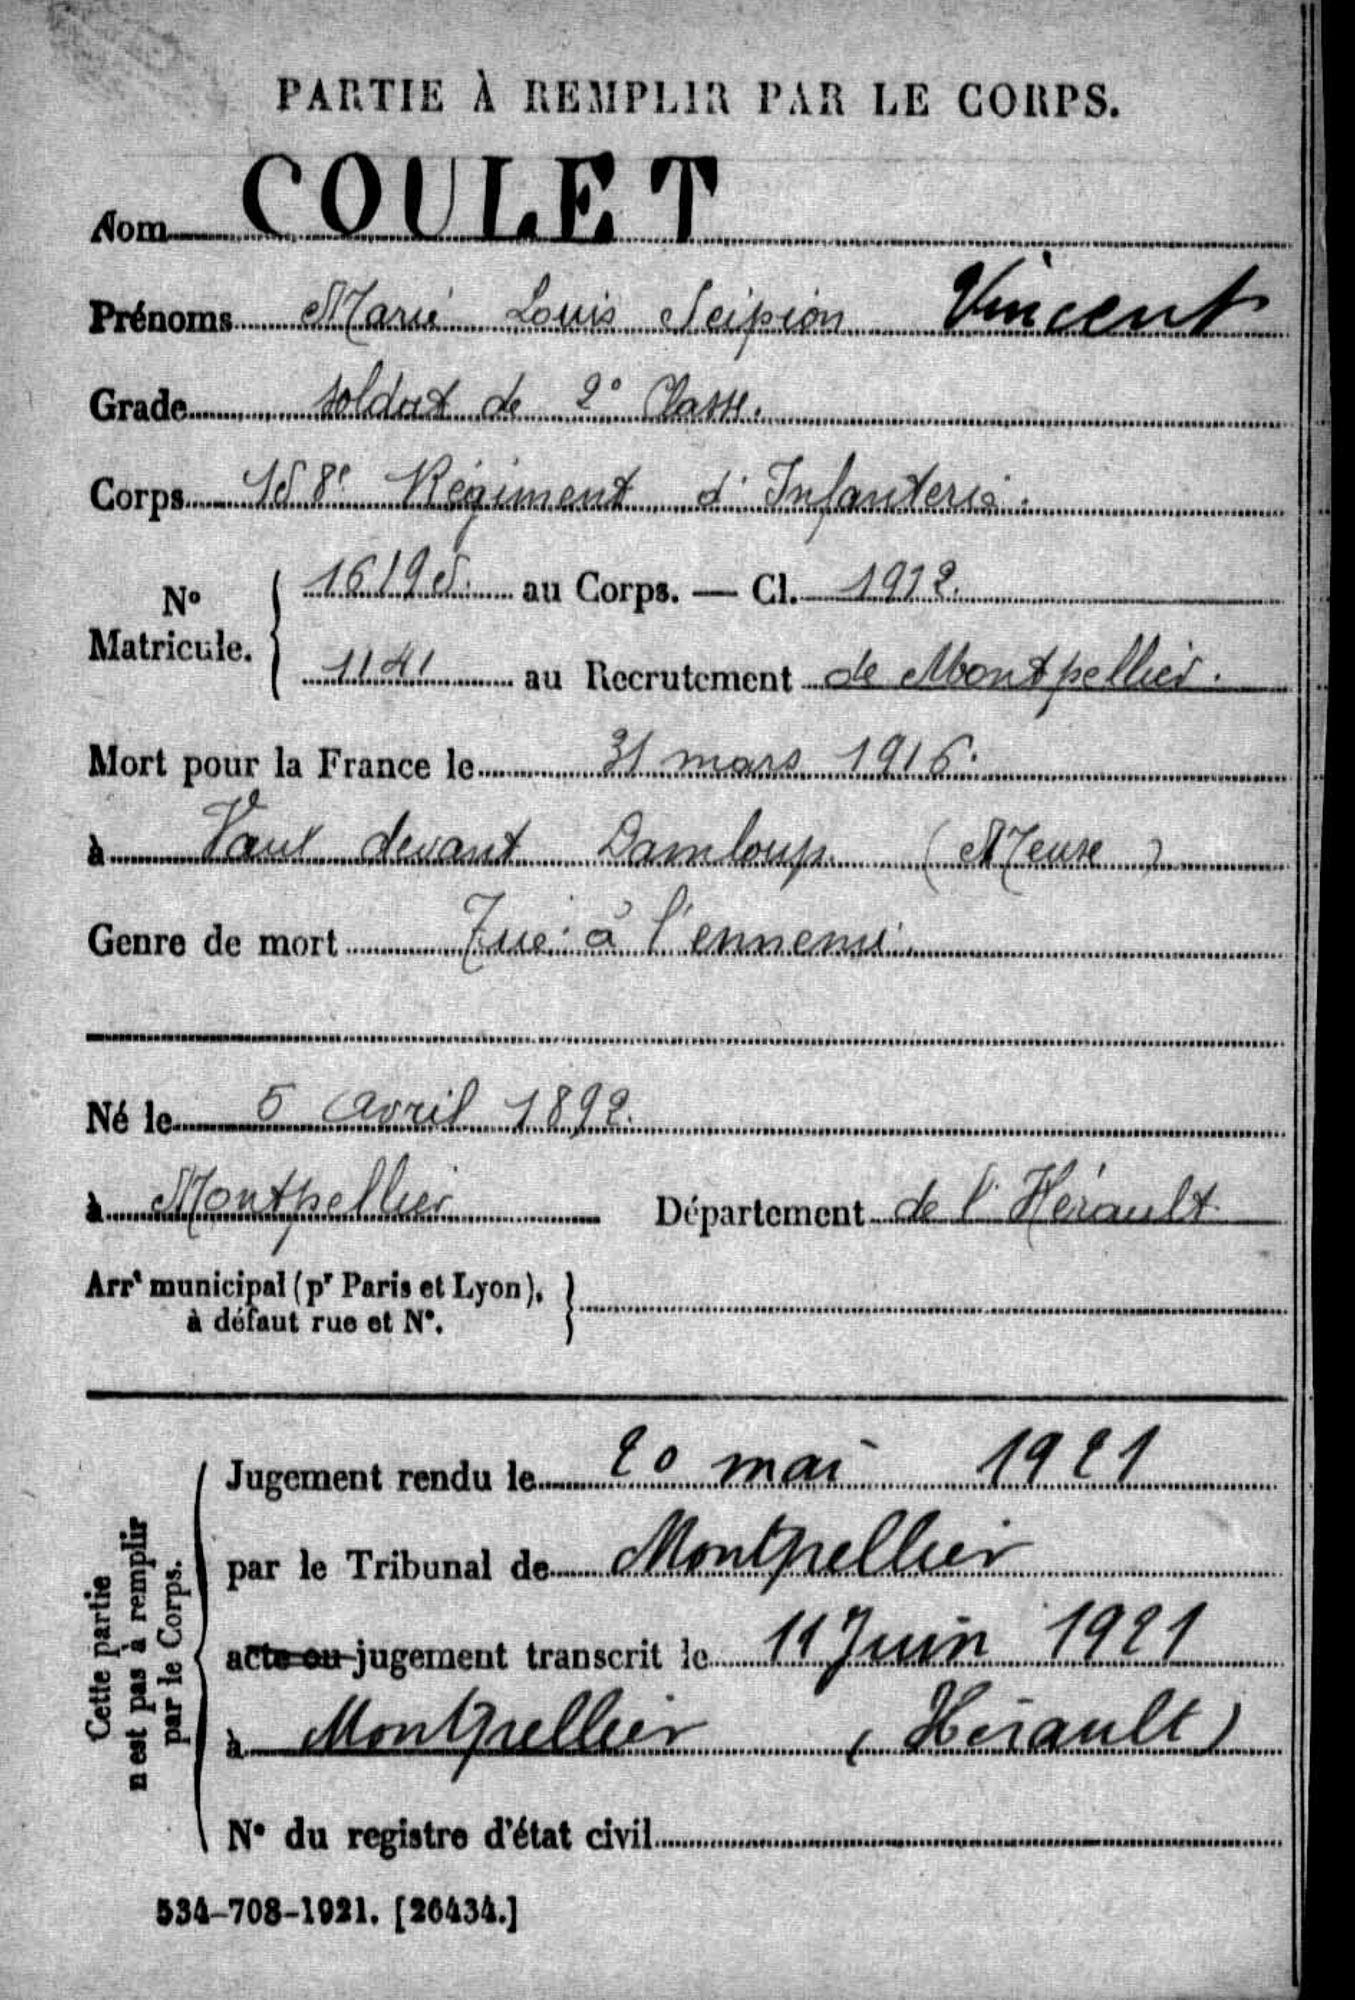 PARTIE À REMPLIR PAR LE CORPS.
Nom COULET
Prénoms Marie Louis Scipion Vincent
Grade soldat de 2e Classe.
Corps 158e Régiment d'Infanterie.
No Matricule. 16195. au Corps. — Cl. 1912.
1141 au Recrutement de Montpellier.
Mort pour la France le 31 mars 1916.
à Vaux devant Damloup (Meuse)
Genre de mort Tué à l'ennemi.
Né le 5 avril 1892.
à Montpellier Département de l'Hérault
Arrt municipal (pr Paris et Lyon),
à défaut rue et No.
Cette partie
n'est pas à remplir
par le Corps.
Jugement rendu le 20 mai 1921
par le Tribunal de Montpellier
acte ou jugement transcrit le 11 Juin 1921
à Montpellier (Hérault)
No du registre d'état civil
534-708-1921. [26434.]